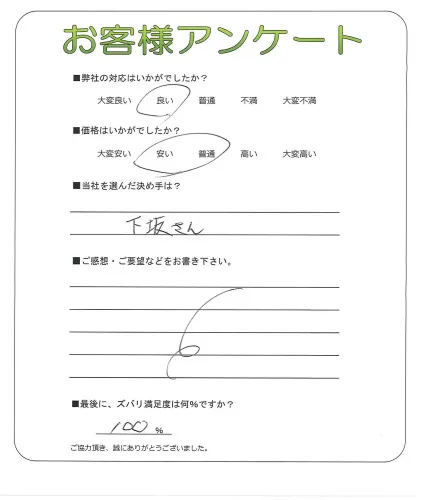 お客様アンケート
■弊社の対応はいかがでしたか？
大変良い 良い 普通 不満 大変不満
■価格はいかがでしたか？
大変安い 安い 普通 高い 大変高い
■当社を選んだ決め手は？
下坂さん
■ご感想・ご要望などをお書き下さい。
■最後に、ズバリ満足度は何％ですか？
100 %
ご協力頂き、誠にありがとうございました。